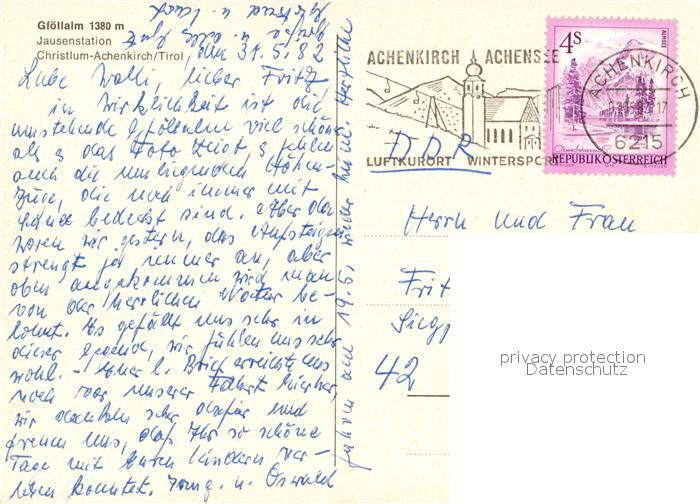 Gföllalm 1380 m
Jausenstation
Christlum-Achenkirch/Tirol, den 31.5.82
Liebe Walli, lieber Fritz
in Wirklichkeit ist die
umstehende Gföllalm viel schöner
als das Foto zeigt, es fehlen
auch die umliegenden Höhen-
züge, die noch immer mit
bedeckt sind. Aber da
waren wir gestern, das Aufsteigen
strengt ja immer an, aber
oben angekommen wird man
von der herrlichen Natur be-
lohnt. Es gefällt uns sehr in
dieser Gegend, wir fühlen uns sehr
wohl. - Euer l. Brief erreichte uns
noch vor unserer Fahrt hierher,
wir danken sehr dafür und
freuen uns, daß Ihr so schöne
Tage mit Euren Kindern ver-
leben konntet. u. Oswald
fahren am 19.5. wieder heim. Herzliche
Grüße u. alles Gute
u. Horst
ACHENKIRCH ACHENSEE
LUFTKURORT WINTERSPORT
DDR
4S
ALMSEE
REPUBLIK ÖSTERREICH
ACHENKIRCH
6215
Herrn und Frau
Frit
Siegf
42
privacy protection
Datenschutz